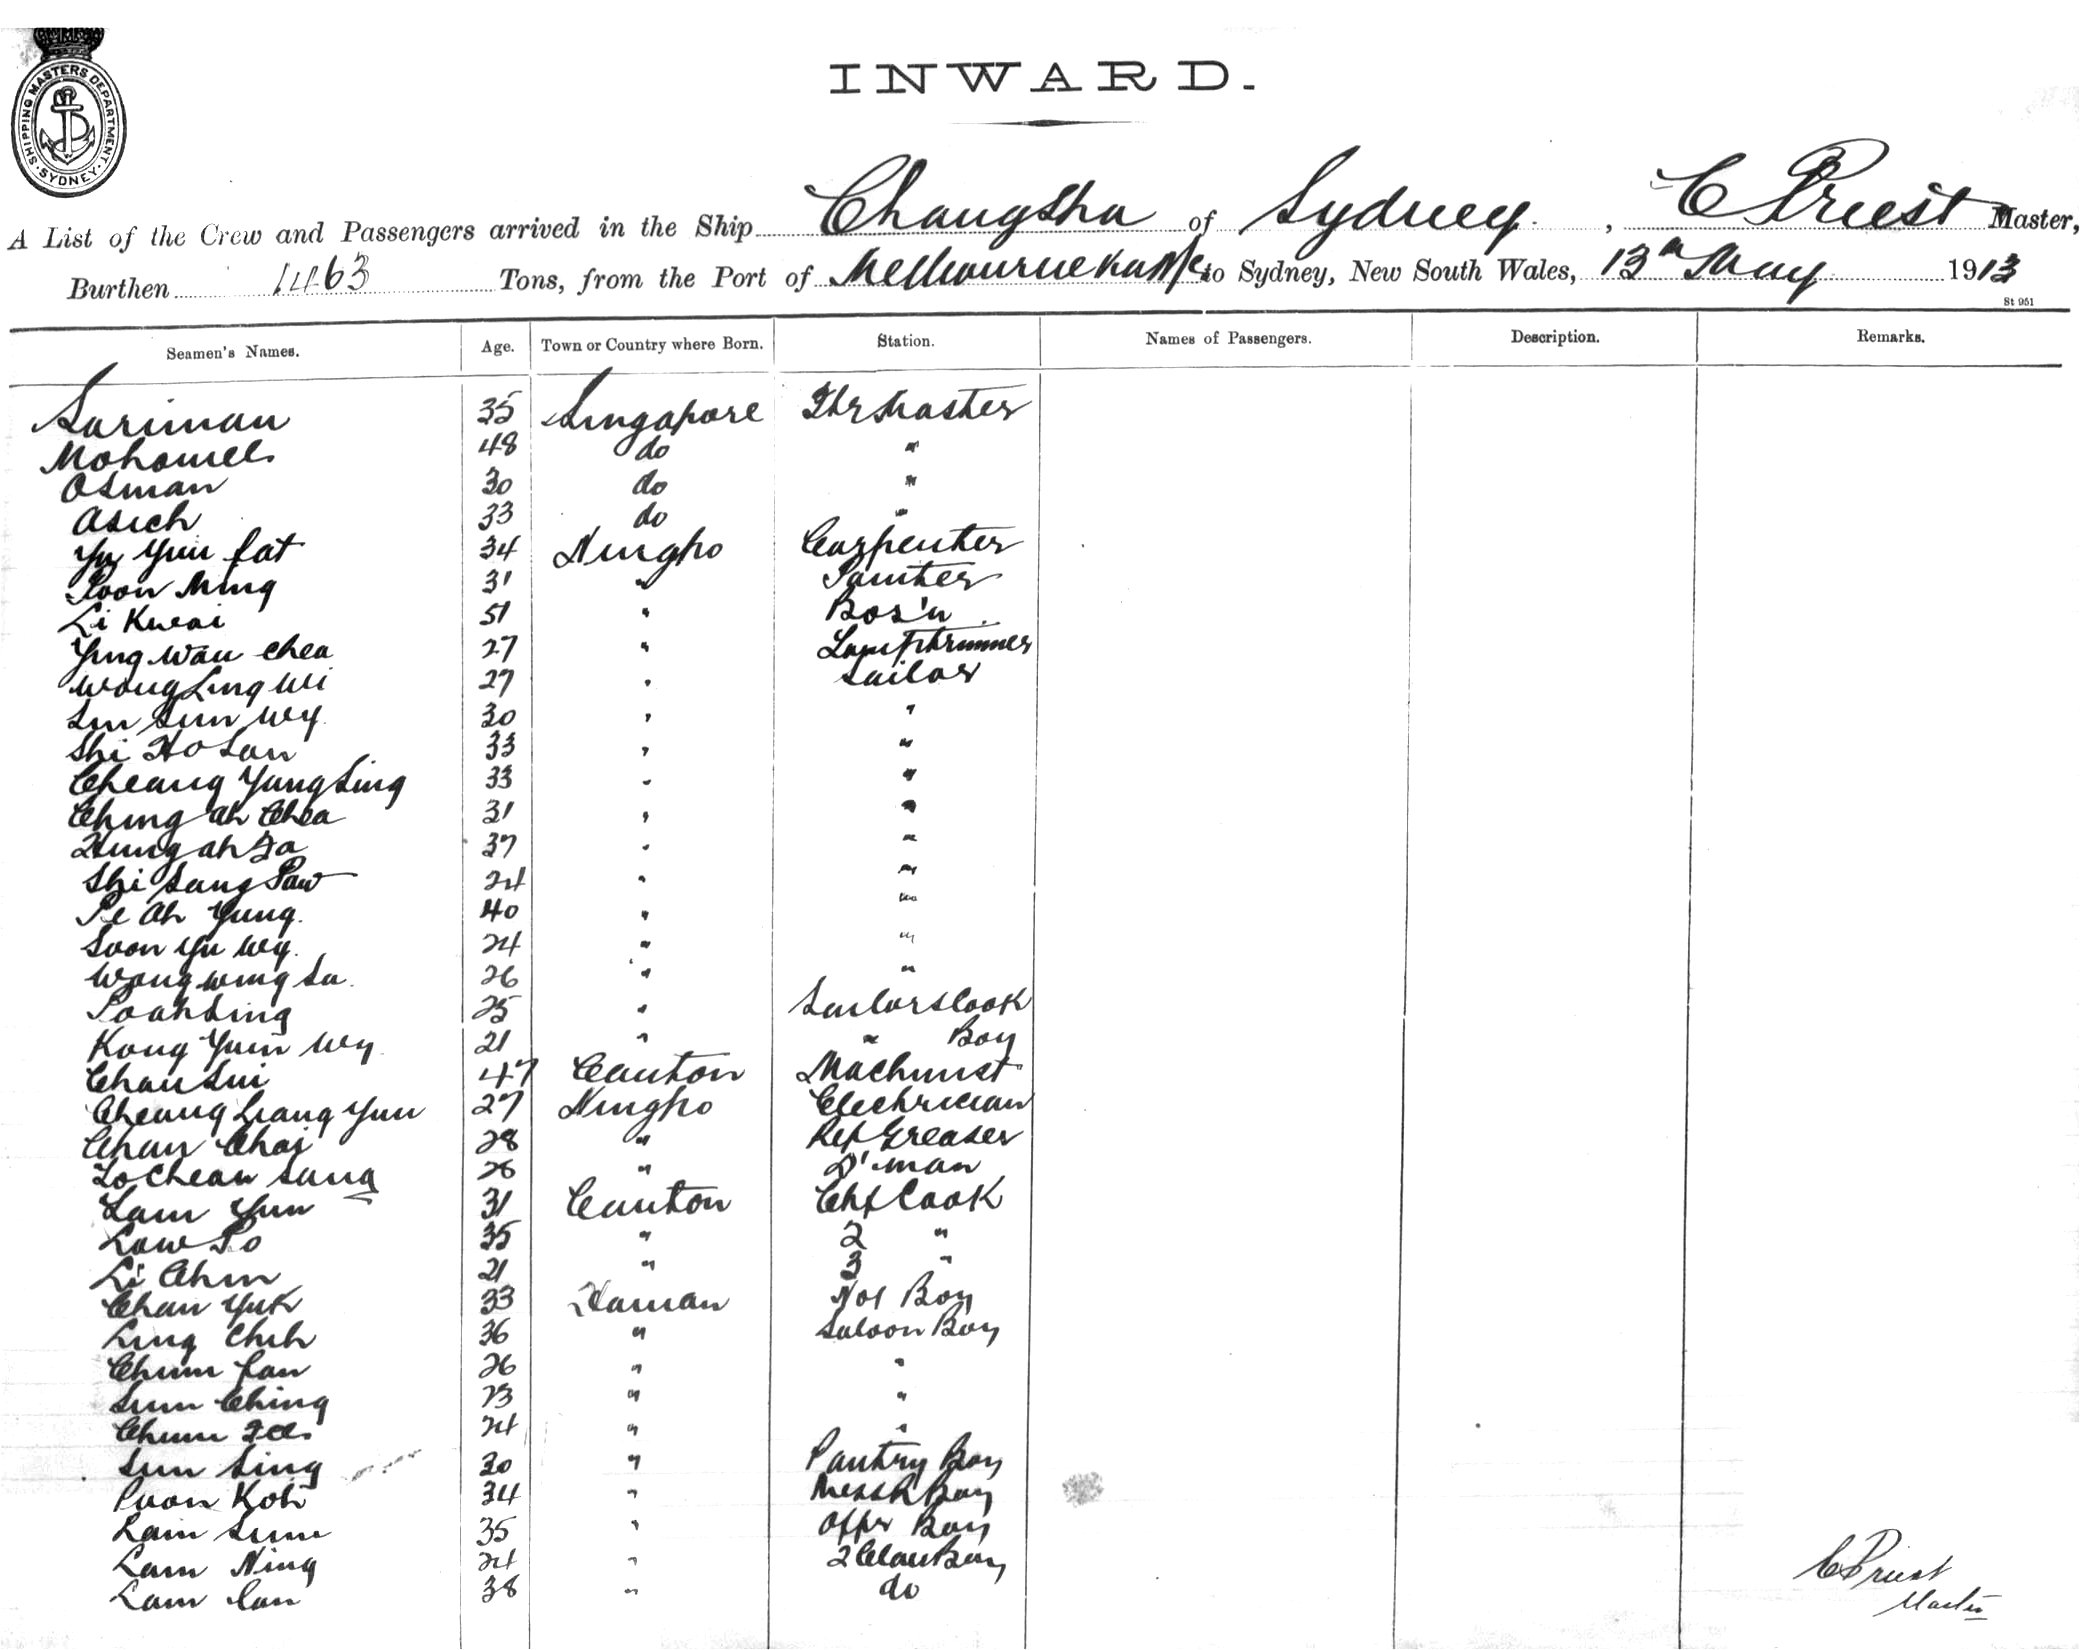 SHIPPING MASTERS DEPARTMENT · SYDNEY ·
INWARD.
A List of the Crew and Passengers arrived in the Ship Changsha of Sydney, C Priest Master,
Burthen 1463 Tons, from the Port of Melbourne to Sydney, New South Wales, 13th May 1913
St 951
Seamen's Names. Age. Town or Country where Born. Station. Names of Passengers. Description. Remarks.
Sariman 35 Singapore
Mohamed 48 do "
Osman 30 do "
Asich 33 do "
Yu Yun fat 34 Ningpo Carpenter
Poon Ming 31 " Painter
Li Kweai 51 " Bos'n
Ying Wan Chea 27 " Lamptrimmer
Wong Ling Wi 27 " Sailor
Sin Sun Wy 30 " "
Shi Ho San 33 " "
Cheang Yung Sing 33 " "
Ching Ah Chea 31 " "
Hung Ah Fa 37 " "
Shi Sang Paw 24 " "
Pe Ah Yung 40 " "
Soon Yu Wy 24 " "
Wong Wing Su 26 " "
Po Ah Sing 25 " Sailors Cook
Kong Yuin Wy 21 " " Boy
Chan Sui 47 Canton Machinist
Cheang Liang Yun 27 Ningpo Electrician
Chan Choi 28 " Ref Greaser
Lo Chean Sang 28 " D'man
Lam Yun 31 Canton Chf Cook
Law Po 35 " 2 "
Li Chin 21 " 3 "
Chan Yuk 33 Hainan No1 Boy
Ling Chih 36 " Saloon Boy
Chum fan 26 " "
Sum Ching 23 " "
Chum Fee 24 " "
Sun Sing 30 " Pantry Boy
Puon Koh 34 " Messr Boy
Lam Sum 35 " Offrs Boy
Lam Ning 24 " 2 Class Boy
Lam Can 38 " do
C Priest
Master